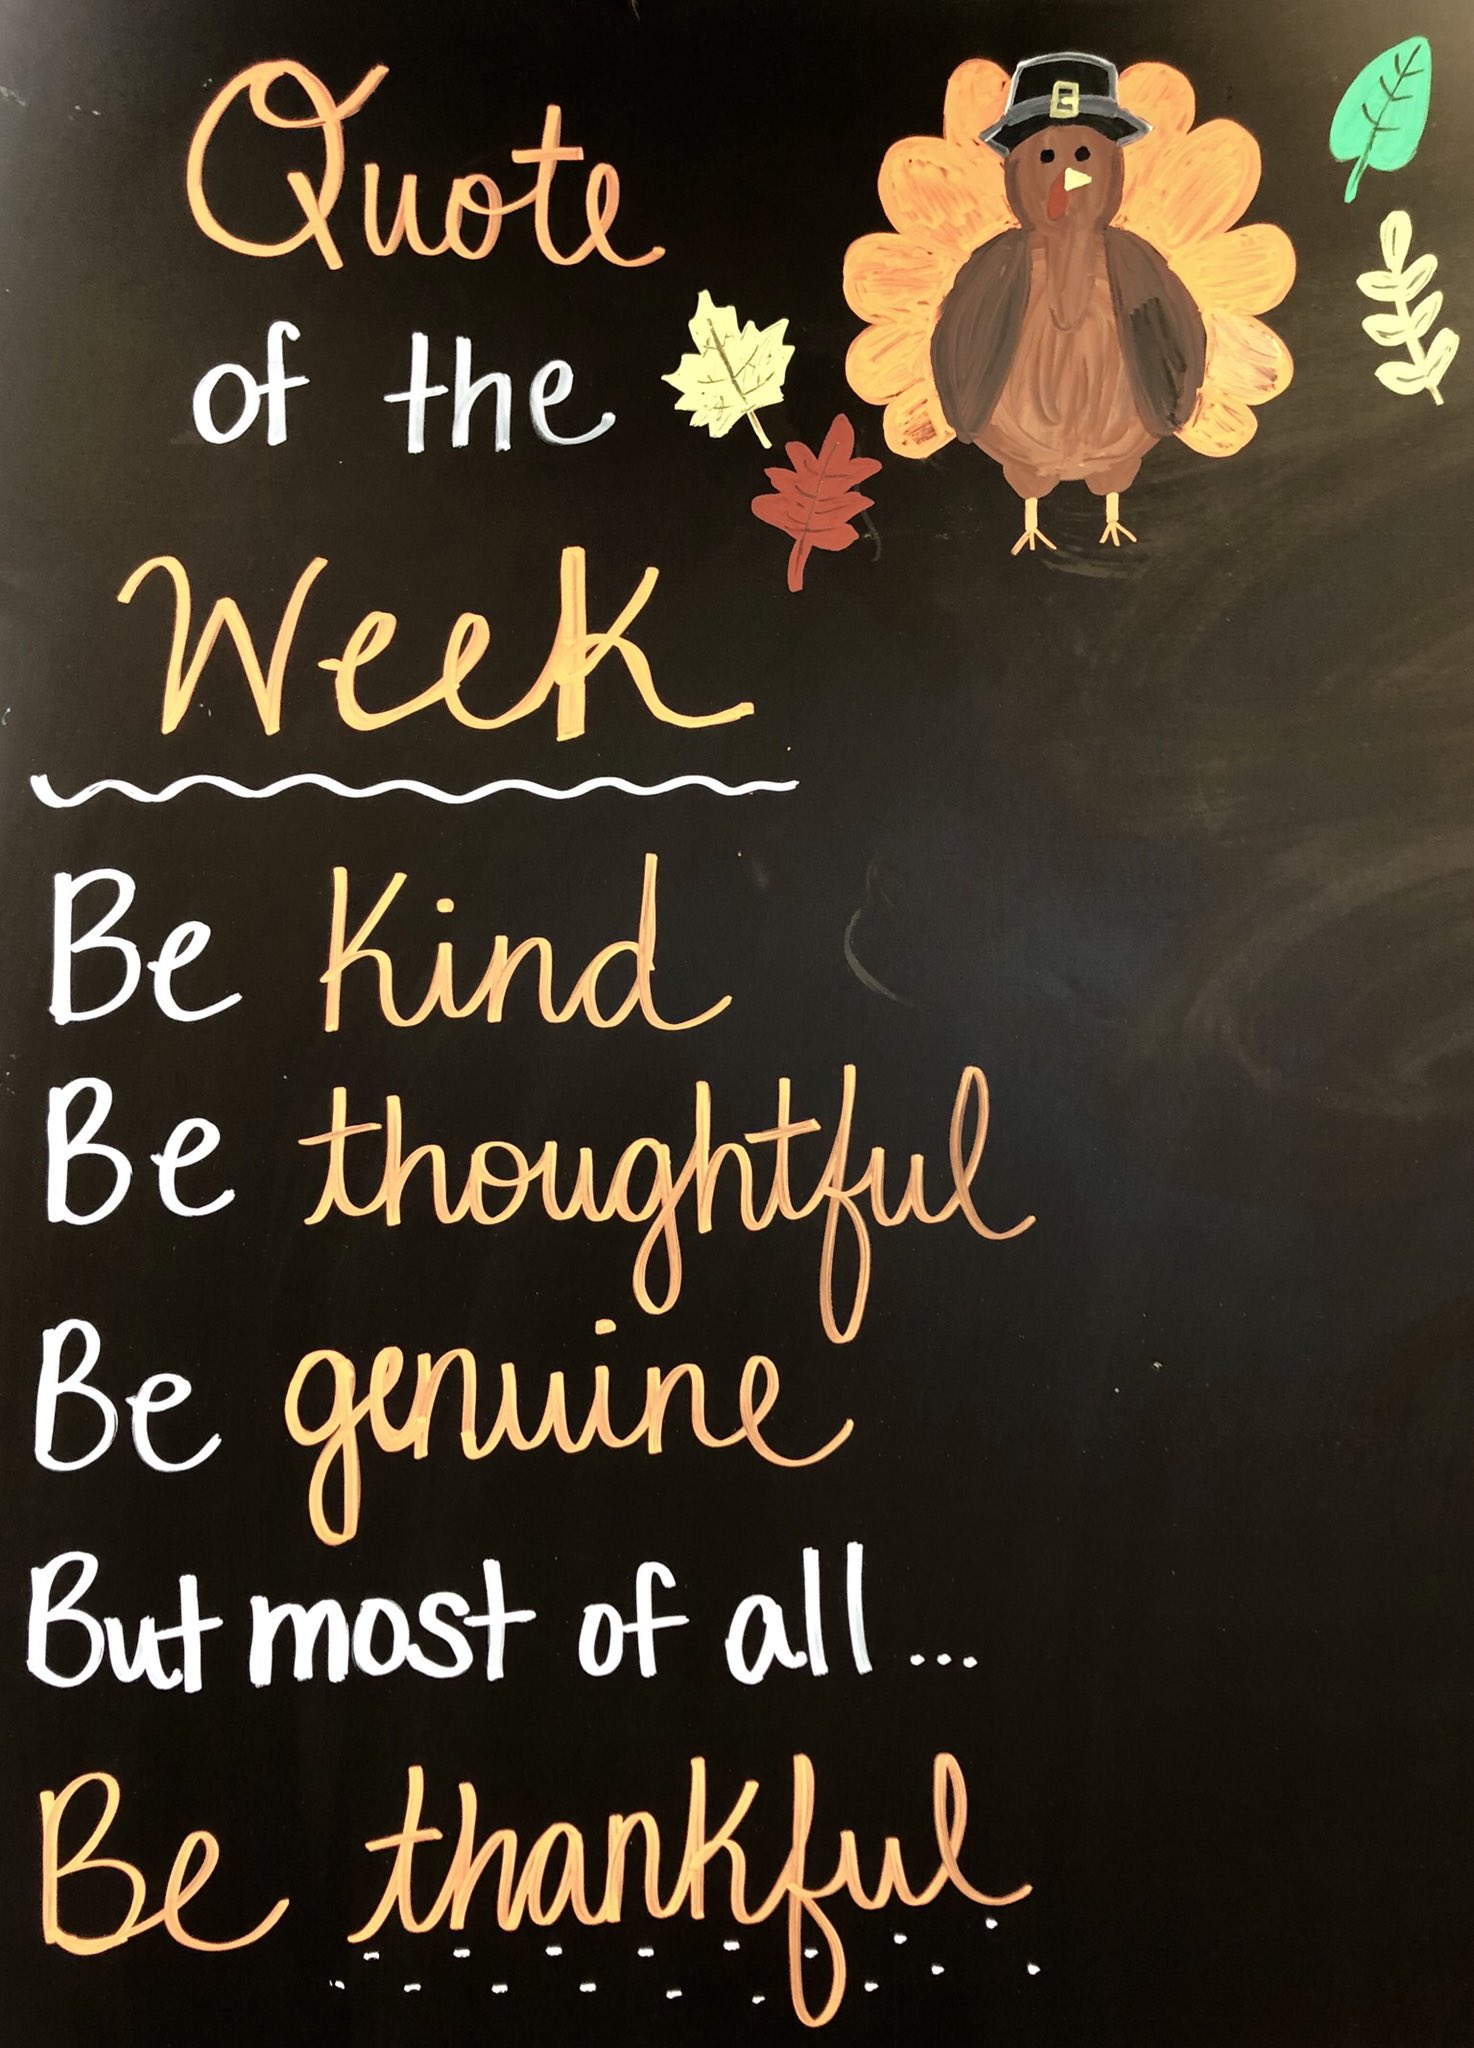 Quote
of the
Week
Be Kind
Be thoughtful
Be genuine
But most of all...
Be thankful